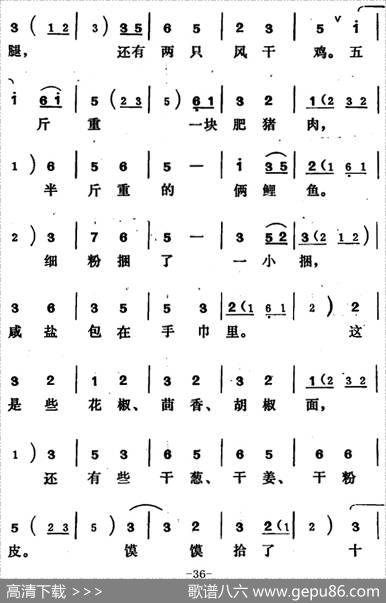 3 ( 1 2 | 3 ) 3 5 | 6 5 | 3 2 | 5 i
腿， 还有 两 只 风 干 鸡。 五
i 6 i | 5 ( 2 3 | 5 ) 6 i | 3 2 | 1 ( 2 3 2
斤 重 一块 肥 猪 肉，
1 ) 6 | 5 6 | 5 — | i 3 5 | 2 ( 1 6 1
半 斤 重 的 俩 鲤 鱼。
2 ) 3 | 7 6 | 5 — | 3 5 2 | 3 ( 2 1 2 )
细 粉 捆 了 一 小 捆，
3 6 | 3 5 | 5 3 | 2 ( 1 6 1 | 2 ) 2
咸 盐 包 在 手 巾 里。 这
3 2 | 1 2 | 3 2 | 3 2 | 1 ( 2 3 2
是 些 花 椒、 茴 香、 胡 椒 面，
1 ) 3 | 5 3 | 6 5 | 6 5 | 6 6
还 有 些 干 葱、 干 姜、 干 粉
5 ( 2 3 | 5 ) 3 | 3 2 | 1 2 | — 3
皮。 馍 馍 抬 了 十
-36-
高清下载 >>>
歌谱八六 www.gepu86.com